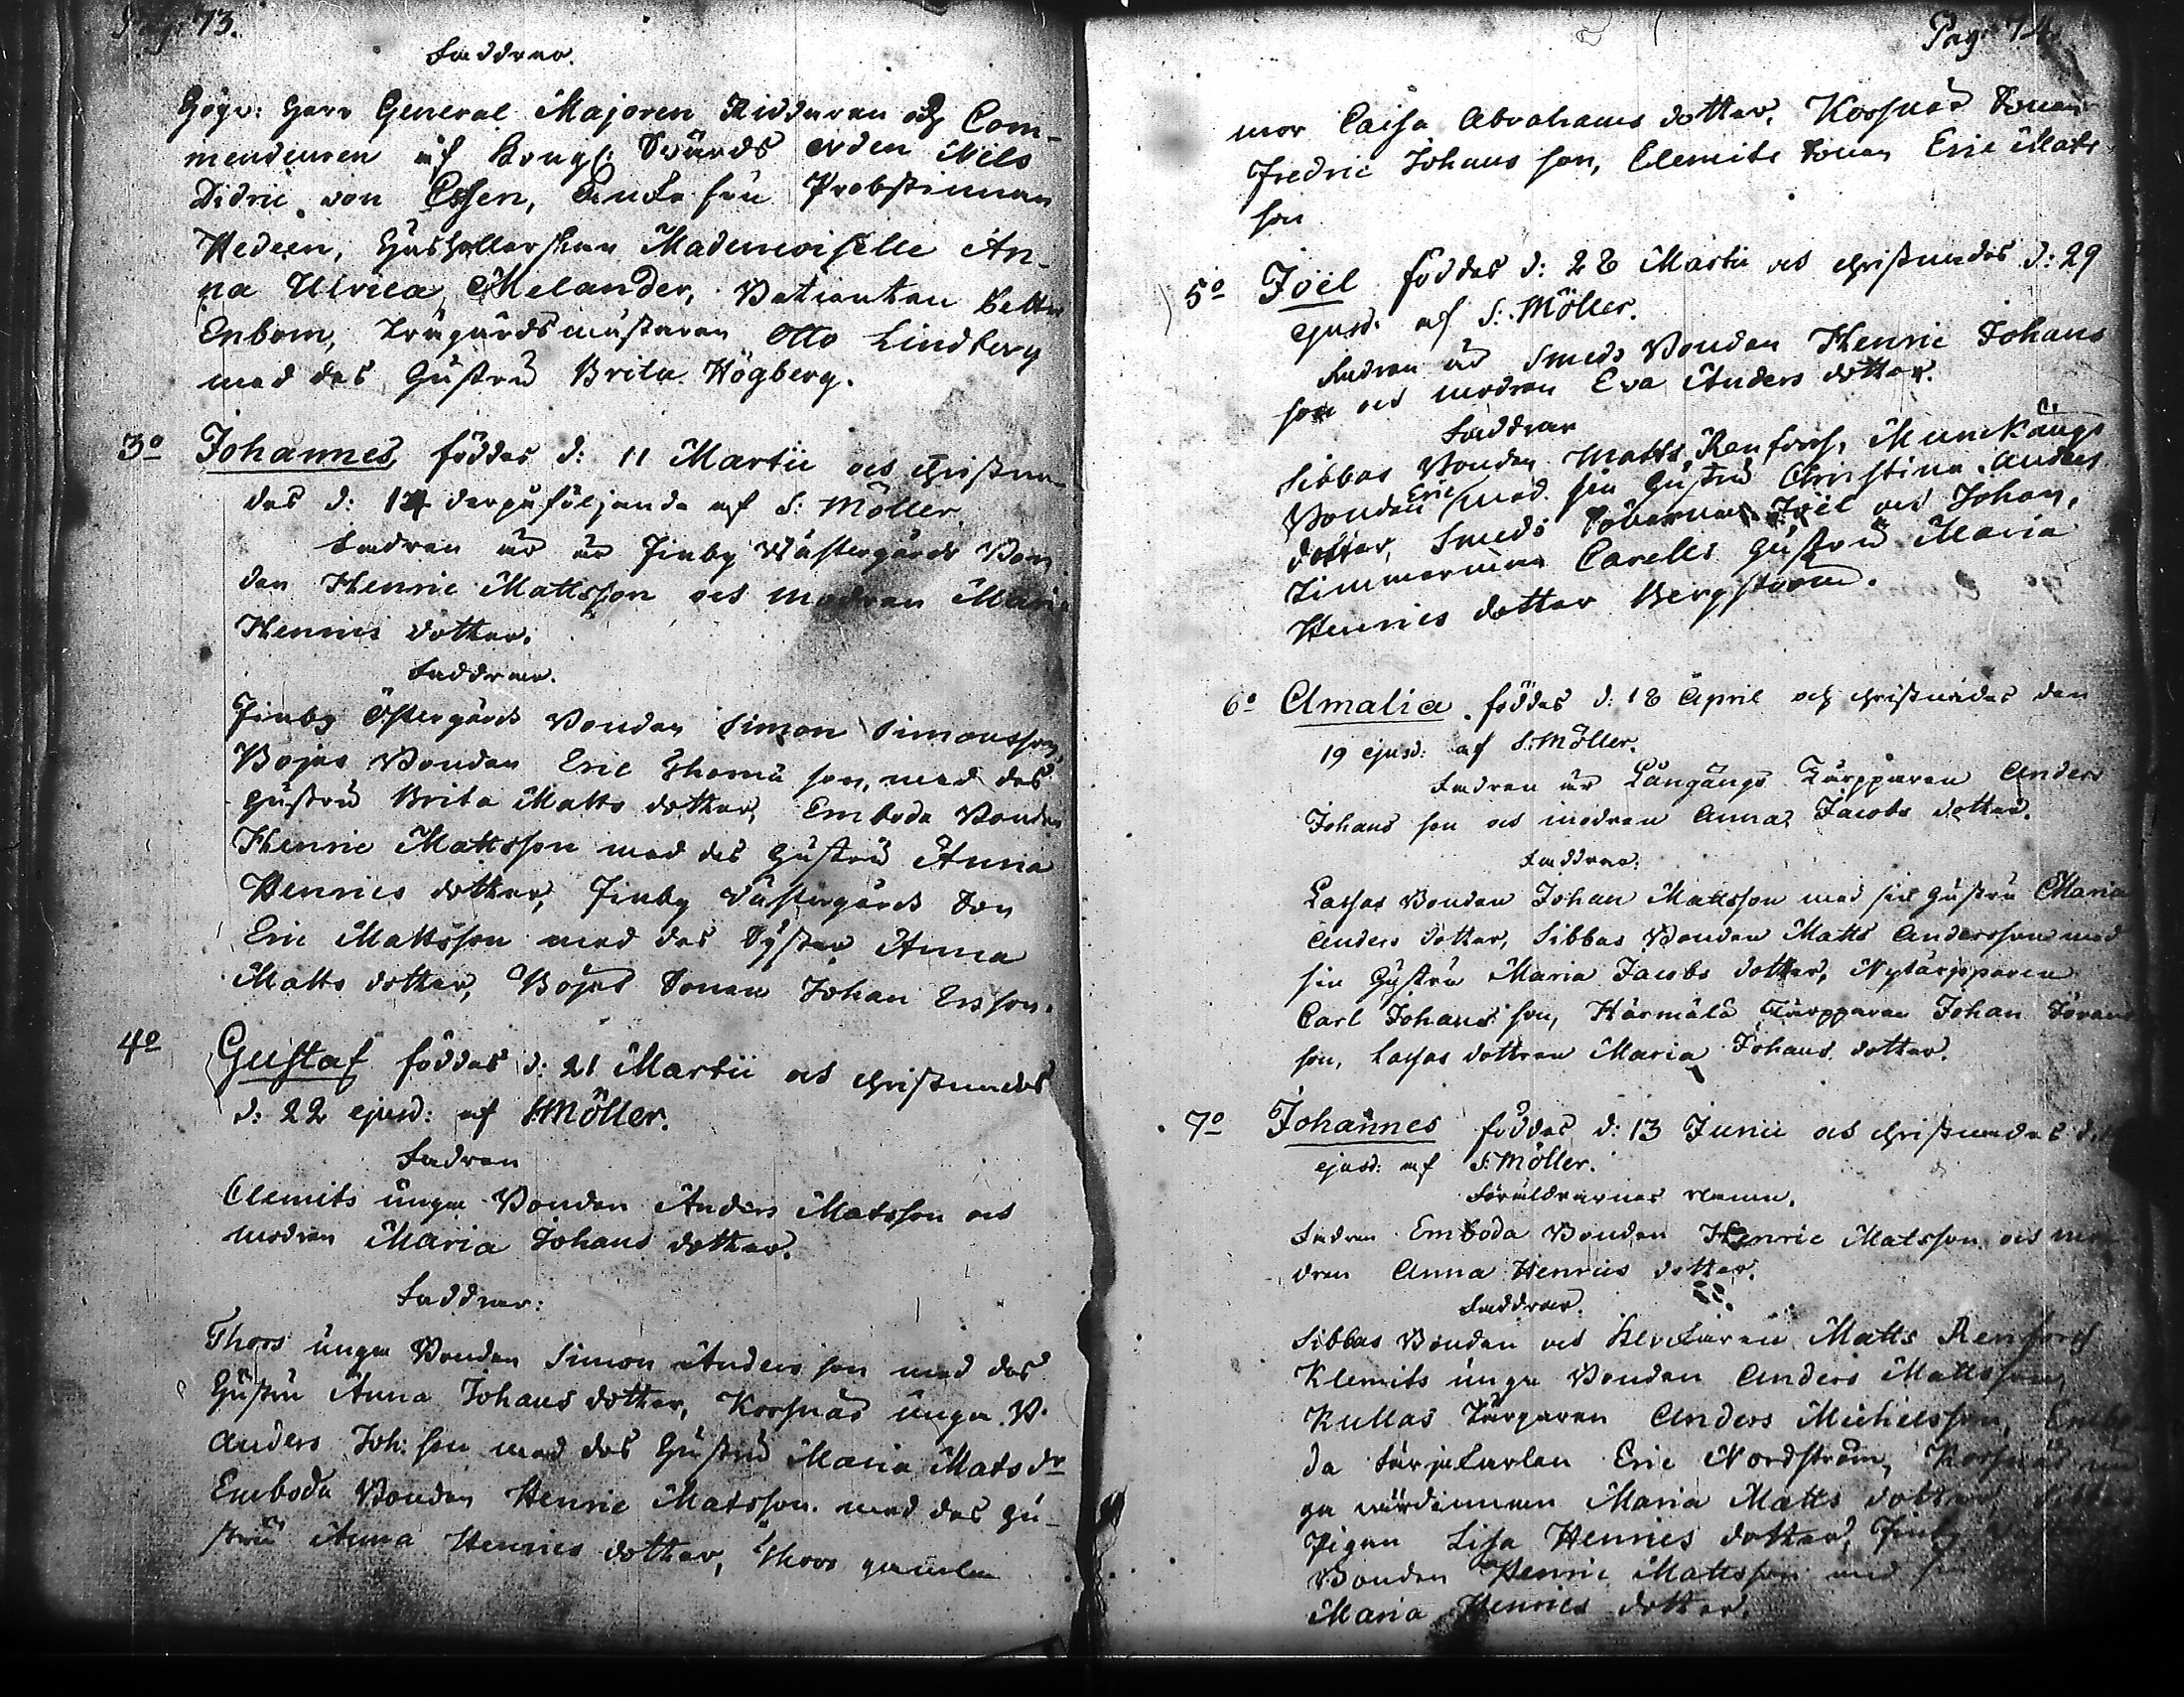 Pag: 73.
Faddrar.
Högv: Herr General Majoren Riddaren och Com-
mendeuren af Kongl: Svärds orden Nils
Didric von Essen, Enke fru Probstinnan
Hedeen, Hushållerskan Mademoiselle An-
na Ulrica Melander,
Enbom, Trägårdsmästaren Otto Lindberg
med des Hustru Brita Högberg.
3o Johannes, föddes d: 11 Martii ock christna-
des d: 14 derpåföljande af S: Möller.
Fadren är Finby Wästergårds Bon
den Henric Mattsson ock modren Maria
Henrics dotter.
Faddrar.
Finby Östergårds Bonden Simon Simonsson,
Bojas Bonden Eric Thomæ son, med des
Hustru Brita Matts dotter, Emboda Bonden
Henric Mattsson med des Hustru Anna
Henrics dotter, Finby Västergårds Son
Eric Mattsson med des Syster Anna
Matts dotter, Bojas Sonen Johan Ersson.
4o Gustaf föddes d: 21 Martii ock christnades
d: 22 ejusd: af S: Möller.
Fadren
Clemits unga Bonden Anders Matsson ock
modren Maria Johans dotter.
Faddrar:
Thors unga Bonden Simon Anders son med des
Hustru Anna Johans dotter, Korsnäs unga B.
Anders Joh: son med des Hustru Maria Mats dr
Emboda Bonden Henric Matsson med des Hu-
stru Anna Henrics dotter, Thors gamla
Pag: 74.
mor Caisa Abrahams dotter, Korsnäs Sonen
Fredric Johans son, Clemits Sonen Eric Mats
son
5o Joël föddes d: 28 Martii ock christnades d: 29
ejusd: af S: Möller.
Fadren är Smeds Bonden Henric Johans
son ock modren Eva Anders dotter.
Faddrar
Sibbas Bonden Matts Renfors, Munckängs
Bonden Eric med sin Hustru Christina Anders
dotter, Smeds Joël ock Johan,
Timmerman Carells Hustru Maria
Henrics dotter Bergström.
6o Amalia föddes d: 18 April och christnades den
19 ejusd: af S: Möller.
Fadren är Långängs Tårpparen Anders
Johans son ock modren Anna Jacobs dotter.
Faddrar:
Lassas Bonden Johan Mattsson med sin Hustru Maria
Anders dotter, Sibbas Bonden Matts Andersson med
sin Hustru Maria Jacobs dotter, Nytårpparen
Carl Johans son, Härmälä Tårpparen Johan Jörans
son, Lassas dottren Maria Johans dotter.
7o Johannes föddes d: 13 Junii ock christnades d:
ejusd: af S: Möller.
Föräldrarnas namn.
Fadren Emboda Bonden Henric Matsson ock mo-
dren Anna Henrics dotter.
Faddrar.
Sibbas Bonden ock Matts Renfors
Klemits unga Bonden Anders Mattsson,
Kullas Tårparen Anders Michelsson, Embo
da Färjekarlen Eric Nordström, Korsnäs un
ga värdinnan Maria Matts dotter,
Pigan Lisa Henrics dotter, Finby
Bonden Henric Mattsson med
Maria Henrics dotter.